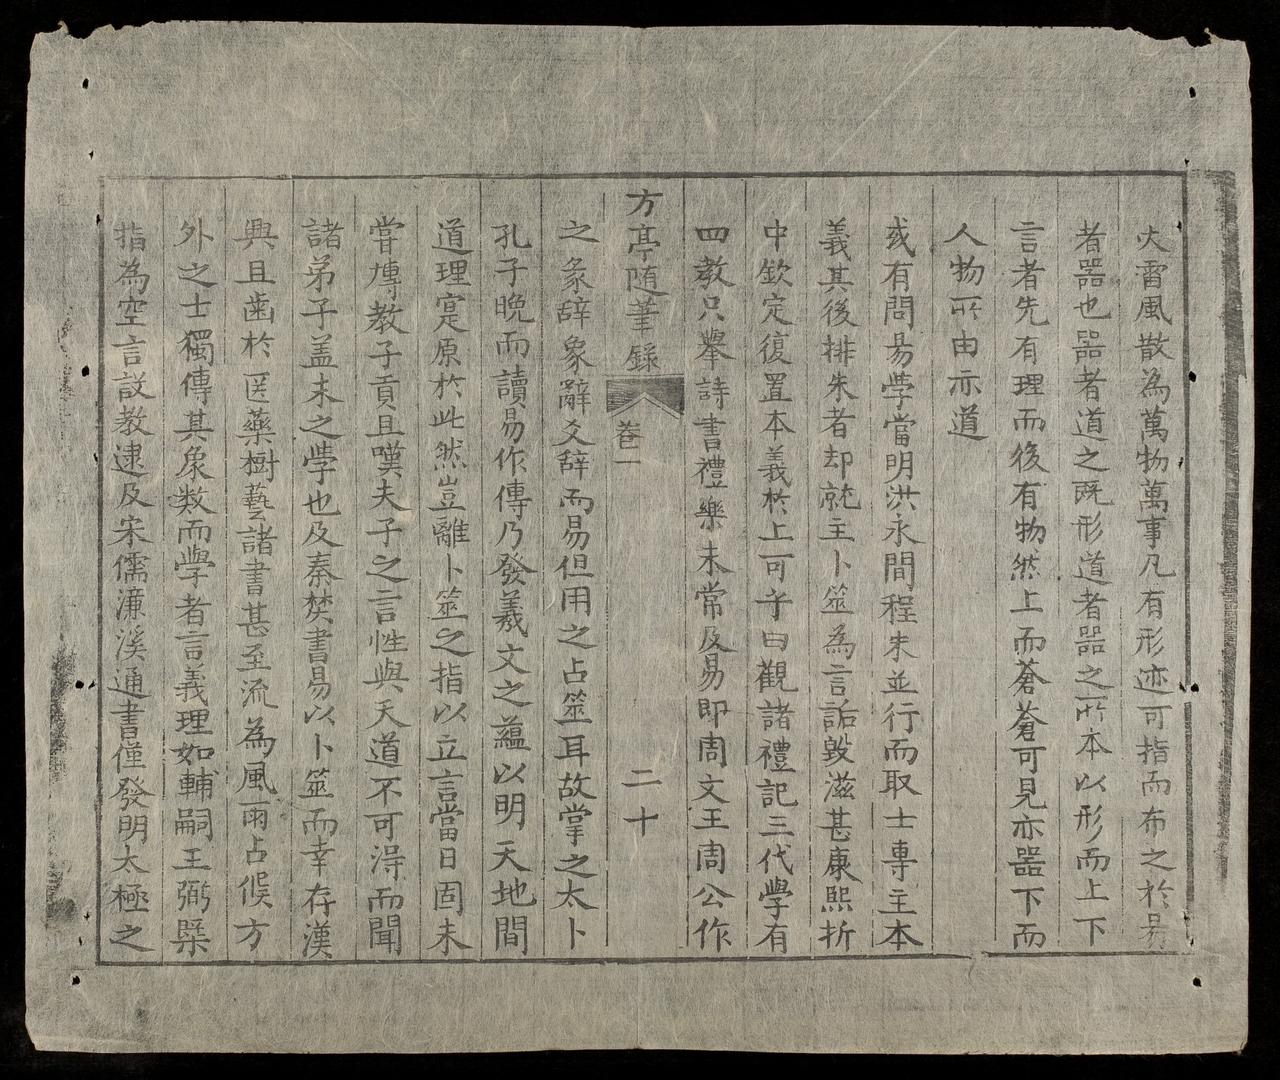 火雷風散為萬物萬事凡有形迹可指而布之於易
者器也器者道之既形道者器之所本以形而上下
言者先有理而後有物然上而蒼蒼可見亦器下而
人物所由亦道
或有問易學當明洪永間程朱並行而取士專主本
義其後排朱者却就主卜筮為言詬毀滋甚康熙折
中欽定復置本義於上可乎曰觀諸禮記三代學有
四教只舉詩書禮樂未常及易即周文王周公作
方亭随筆錄 卷一 二十
之彖辞象辭爻辞而易但用之占筮耳故掌之太卜
孔子晚而讀易作傳乃發羲文之蘊以明天地間
道理寔原於此然豈離卜筮之指以立言當日固未
甞愽教子貢且嘆夫子之言性與天道不可淂而聞
諸弟子盖未之學也及秦焚書易以卜筮而幸存漢
興且歯於医藥樹藝諸書甚至流為風雨占候方
外之士獨傳其象数而學者言義理如輔嗣王弼槩
指為空言設教逮及宋儒濂溪通書僅發明太極之